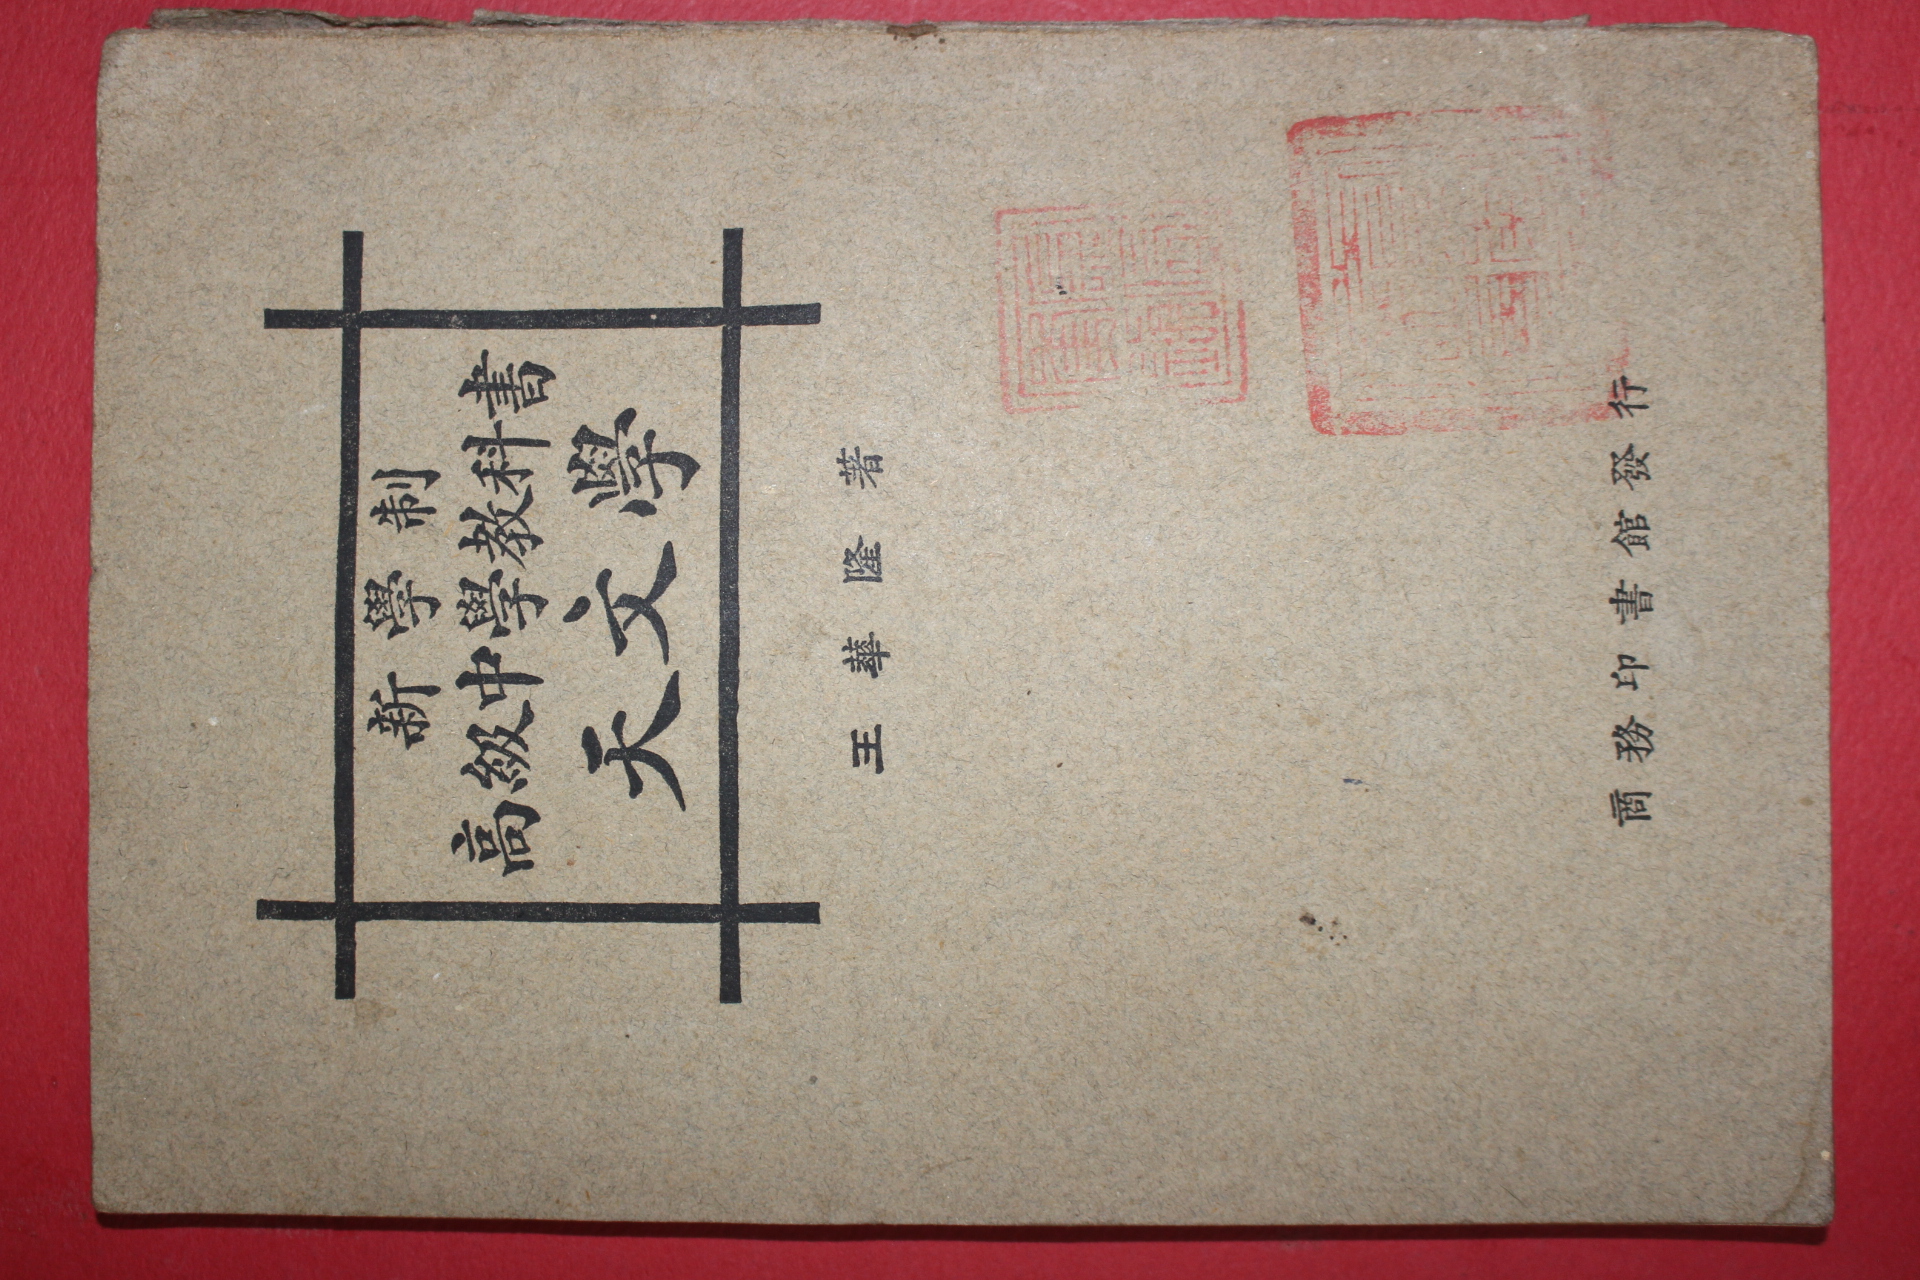 新學制
高級中學教科書
天文學
王華隆著
商務印書館發行